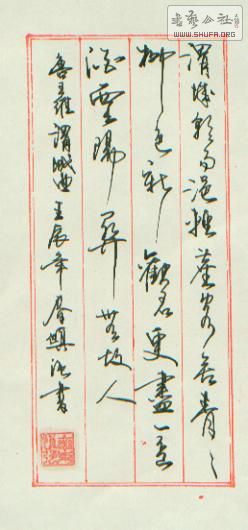 書藝公社
WWW.SHUFA.ORG
渭城朝雨浥輕塵客舍青々
柳色新勸君更盡一杯
酒西出陽關無故人
渭城曲壬辰年春書